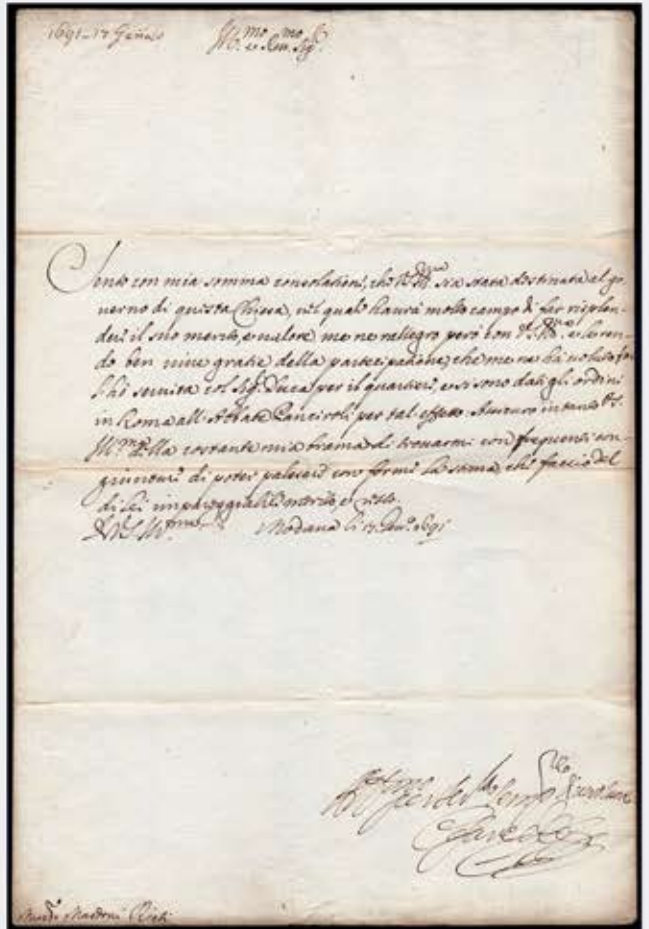 1691 - 17 Gennaro
Ill.mo e Rev.mo Sig.re
Sento con mia somma consolatione, che V.S. Ill.ma sia stata destinata al go-
verno di questa Chiesa, nel quale haurà molto campo di far risplen-
dere il suo merito, e valore, me ne rallegro però con V.S. Ill.ma, e le ren-
do ben vive gratie della partecipatione, che me ne hà voluto
servita col Sig.r Duca per il quartiere, e si sono dati gli ordini
in Roma all'Abbate Panciroli per tal effetto. Assicuro intanto V.S.
Ill.ma della costante mia brama di trovarmi con frequenti con-
giunture di poter palesare con fermi la stima, che faccio del
di Lei impareggiabile merito, e resto.
Di V.S. Ill.ma Modana li 17 Gen.o 1691
Aff.mo per ser.la sempre
Mons.r Rieti